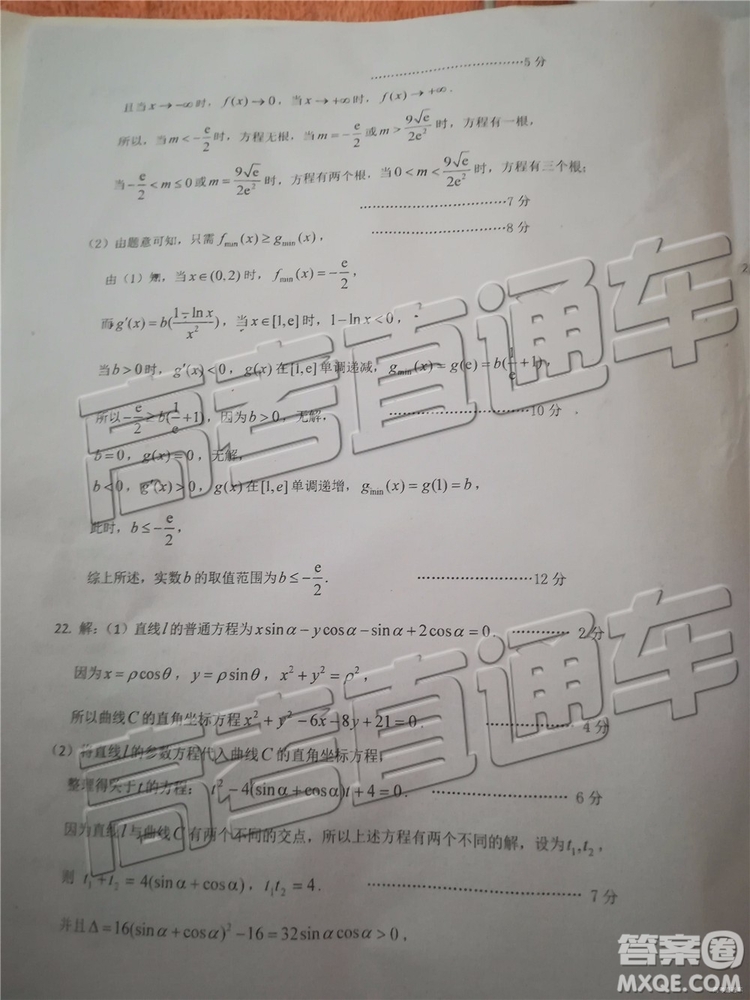 ……………………………5 分
且当 x→−∞ 时，f(x)→0，当 x→+∞ 时，f(x)→+∞．
所以，当 m<−e/2 时，方程无根，当 m=−e/2 或 m>9√e/2e² 时，方程有一根，
当 −e/2<m≤0 或 m=9√e/2e² 时，方程有两个根，当 0<m<9√e/2e² 时，方程有三个根；
……………………………7 分
（2）由题意可知，只需 fmin(x)≥gmin(x)，
……………………………8 分
由（1）知，当 x∈(0,2) 时，fmin(x)=−e/2，
而 g′(x)=b(1−ln x/x²)，当 x∈[1,e] 时，1−ln x<0，
当 b>0 时，g′(x)<0，g(x) 在 [1,e] 单调递减，gmin(x)=g(e)=b(1/e+1)，
所以 −e/2≥b(1/e+1)，因为 b>0，无解，
……………………………10 分
b=0，g(x)=0，无解，
b<0，g′(x)>0，g(x) 在 [1,e] 单调递增，gmin(x)=g(1)=b，
此时，b≤−e/2，
综上所述，实数 b 的取值范围为 b≤−e/2． ……………………………12 分
22. 解：（1）直线 l 的普通方程为 x sin α−y cos α−sin α+2cos α=0． ……………2 分
因为 x=ρcos θ，y=ρsin θ，x²+y²=ρ²，
所以曲线 C 的直角坐标方程 x²+y²−6x−8y+21=0． ……………………4 分
（2）将直线 l 的参数方程代入曲线 C 的直角坐标方程，
整理得关于 t 的方程：t²−4(sin α+cos α)t+4=0． ……………………6 分
因为直线 l 与曲线 C 有两个不同的交点，所以上述方程有两个不同的解，设为 t₁,t₂，
则 t₁+t₂=4(sin α+cos α)，t₁t₂=4． ……………………………7 分
并且 Δ=16(sin α+cos α)²−16=32sin α cos α>0，
高考直通车
高考直通车
答案圈
MXQE.COM